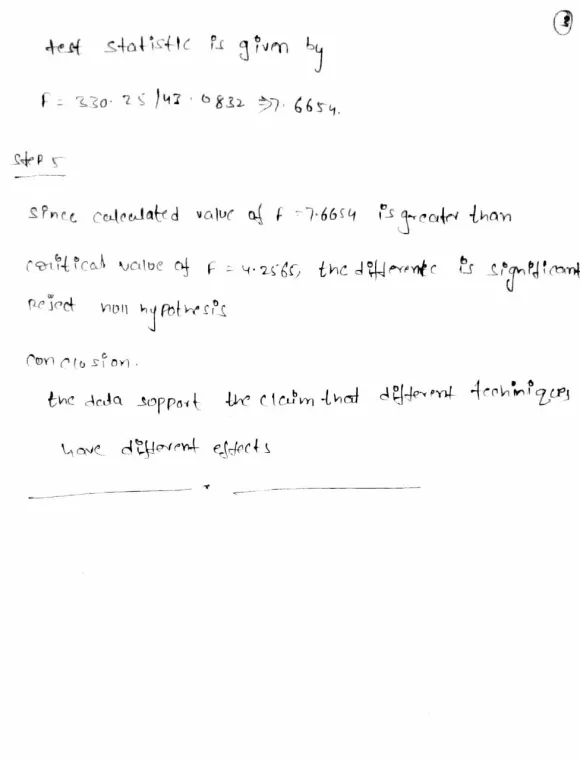 3
test statistic is given by
F = 330.25 /43.0832 ⇒7.6654.
Step 5
Since calculated value of F = 7.6654 is greater than
critical value of F = 4.2565, the differente is significant
Reject null hypothesis
Conclusion.
the data support the claim that different techiniques
have different effects